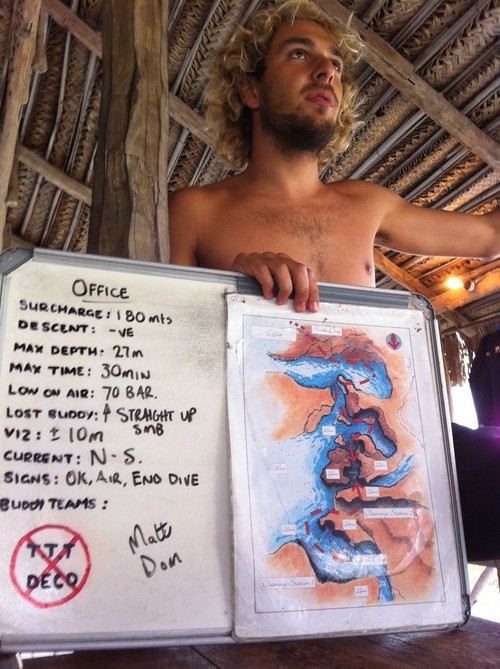 OFFICE
SURCHARGE: 180 mts
DESCENT: -VE
MAX DEPTH: 27m
MAX TIME: 30MIN
LOW ON AIR: 70 BAR.
LOST BUDDY: ↑ STRAIGHT UP
SMB
VIZ: ± 10m
CURRENT: N-S.
SIGNS: OK, AIR, END DIVE
BUDDY TEAMS:
TTT
DECO
Matt
Dom
Cleaning Station 2
Cleaning Station 1